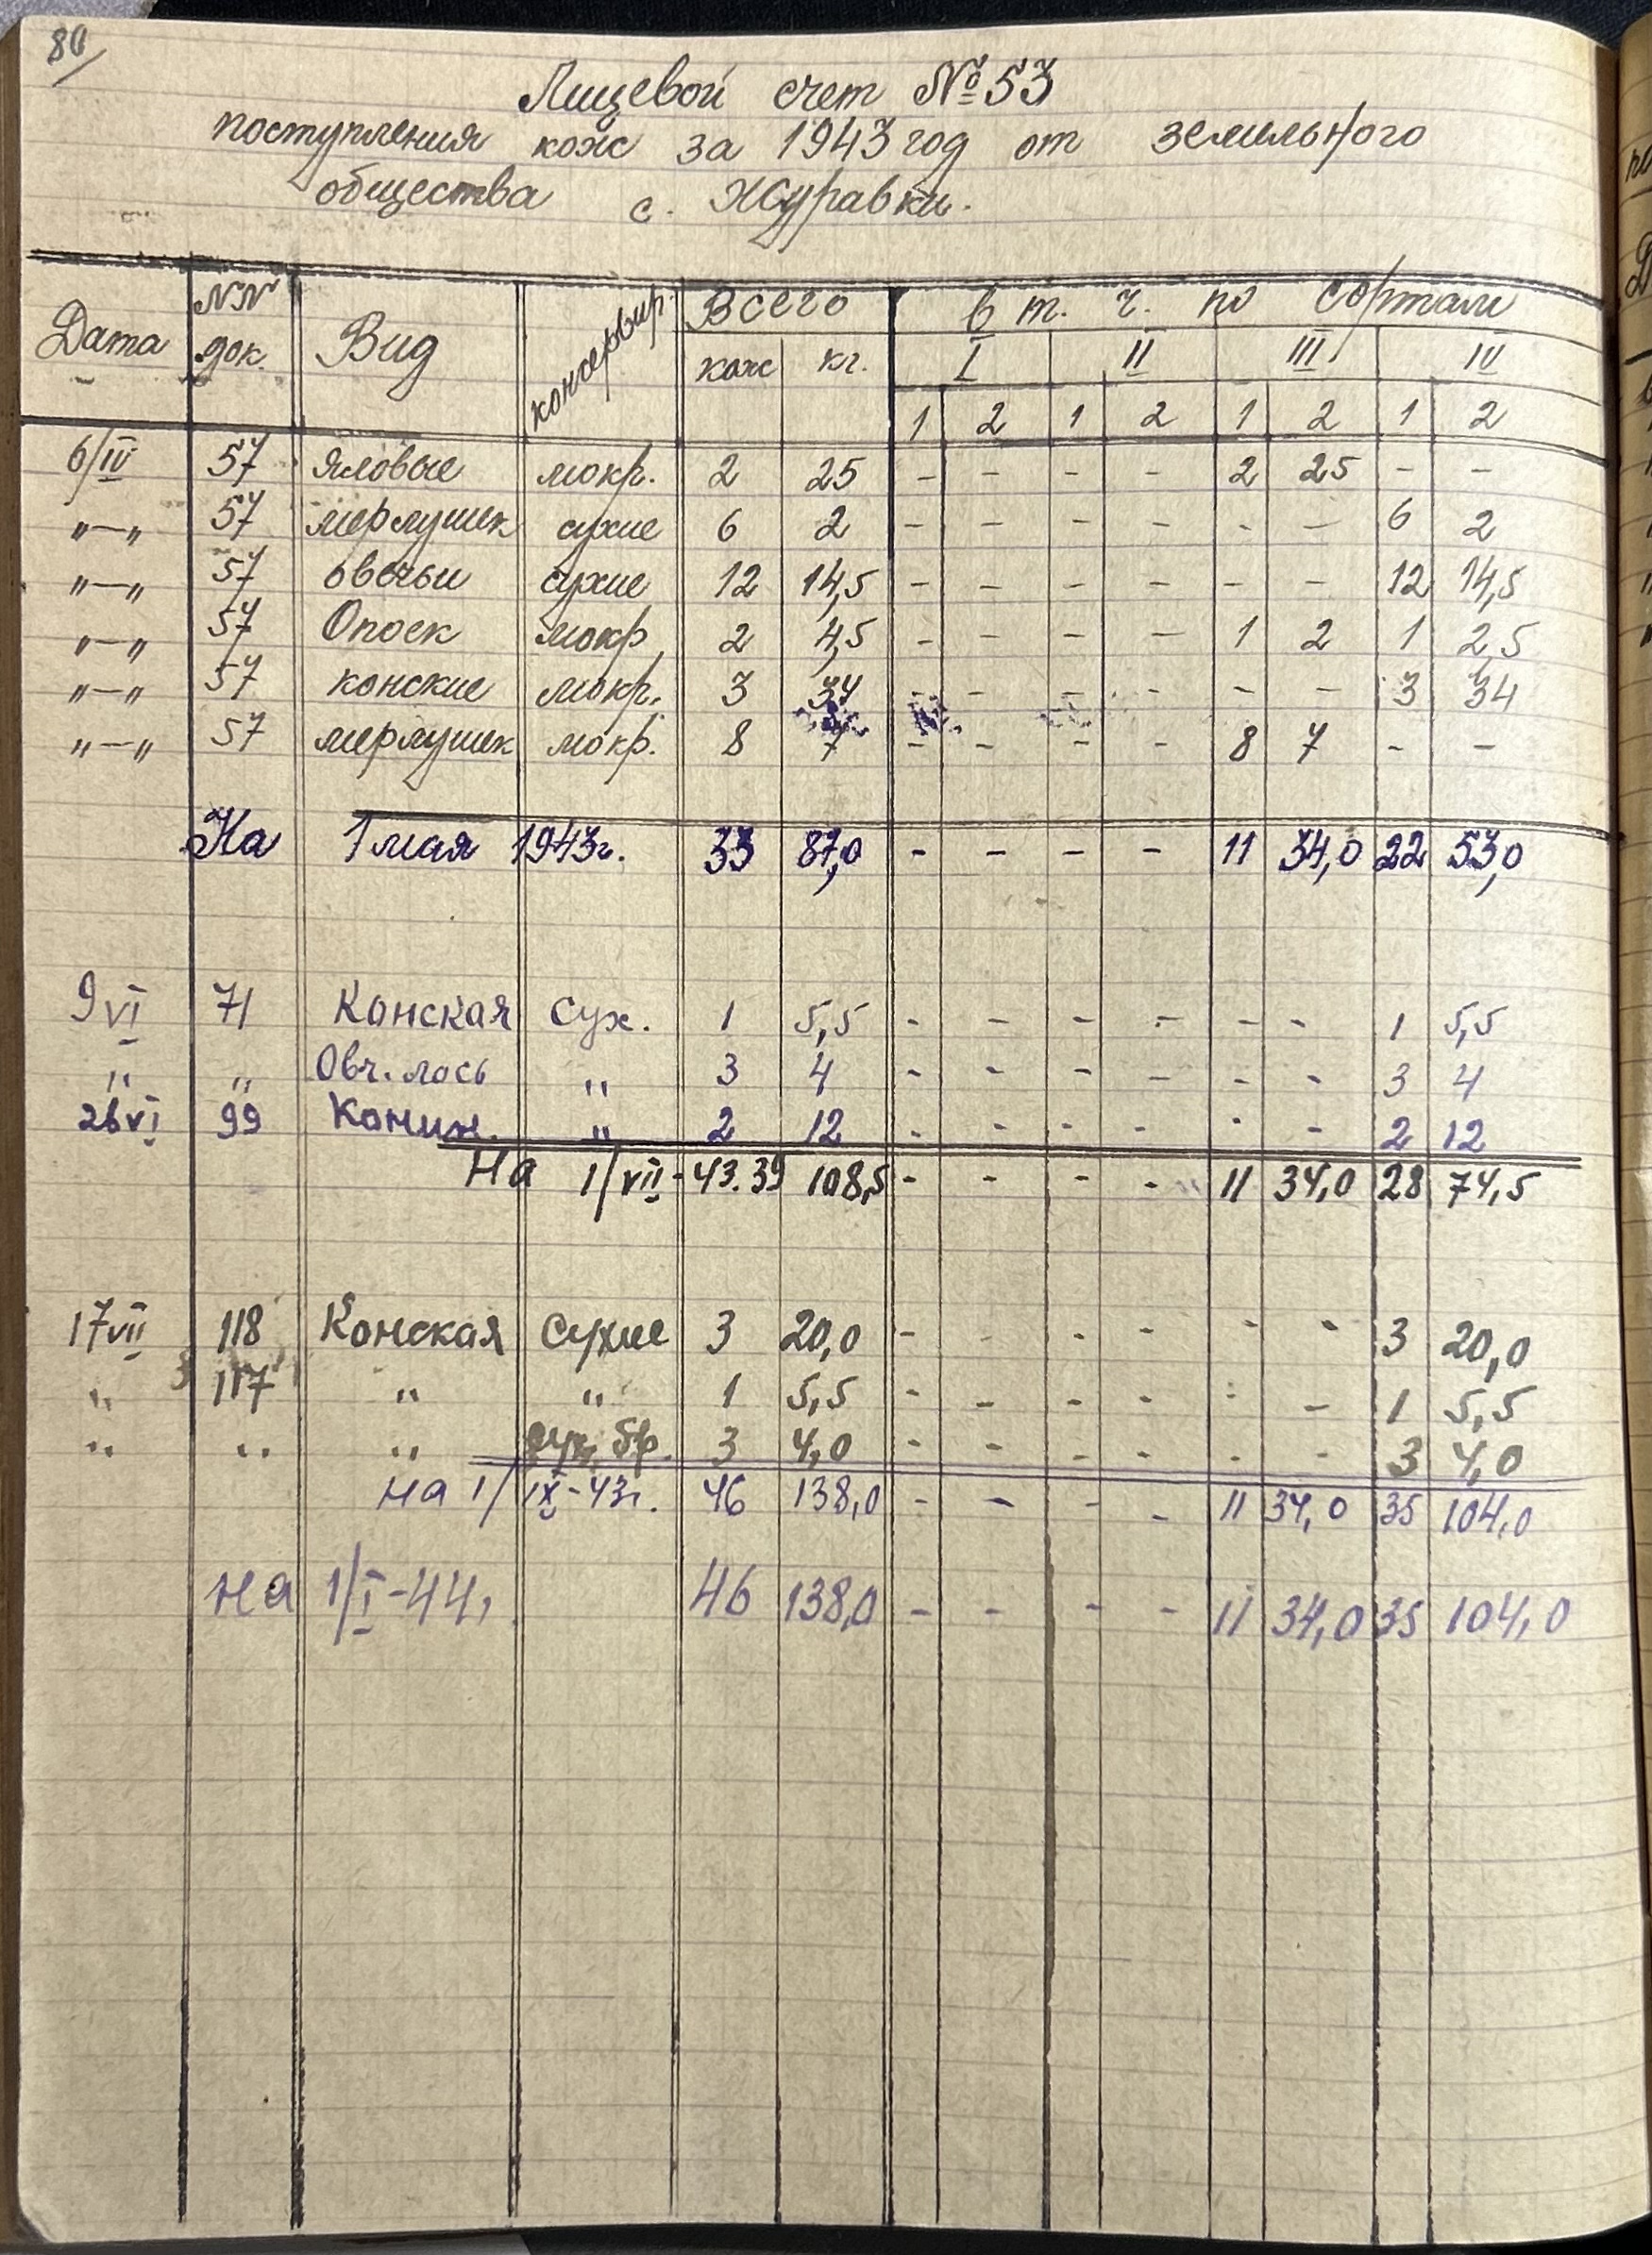 80
Лицевой счет № 53
поступления кож за 1943 год от земельного
общества с. Журавки.
Дата NN док. Вид консервир. Всего в т. ч. по сортам
кож кг. I II III IV
1 2 1 2 1 2 1 2
6/IV 57 яловые мокр. 2 25 - - - - 2 25 - -
"—" 57 мерлушек сухие 6 2 - - - - - - 6 2
"—" 57 овечьи сухие 12 14,5 - - - - - - 12 14,5
"—" 57 Опоек мокр 2 4,5 - - - - 1 2 1 2,5
"—" 57 конские мокр. 3 34 - - - - - - 3 34
"—" 57 мерлушек мокр. 8 7 - - - - 8 7 - -
На 1 мая 1943г. 33 87,0 - - - - 11 34,0 22 53,0
9 VI 71 Конская Сух. 1 5,5 - - - - - - 1 5,5
" " Овч. лось " 3 4 - - - - - - 3 4
26 VI 99 Конин. " 2 12 - - - - - - 2 12
На 1/VII-43. 39 108,5 - - - - 11 34,0 28 74,5
17 VII 118 Конская Сухие 3 20,0 - - - - - - 3 20,0
" 117 " " 1 5,5 - - - - - - 1 5,5
" " " сух. бр. 3 4,0 - - - - - - 3 4,0
На 1/IX-43г. 46 138,0 - - - - 11 34,0 35 104,0
На 1/I-44. 46 138,0 - - - - 11 34,0 35 104,0